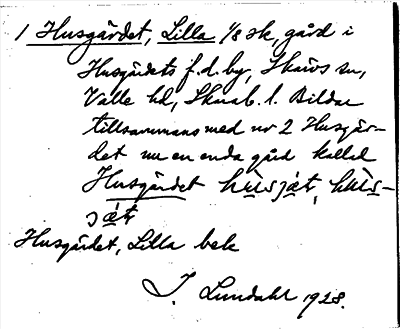 1 Husgärdet, Lilla 1/8 sk, gård i
Husgärdets f.d. by, Skärvs sn,
Valle hd, Skarab. l. Bildar
tillsammans med nr 2 Husgär-
det nu en enda gård kallad
Husgärdet hùsját, hùs-
ját
Husgärdet, Lilla bek
I. Lundahl 1928.